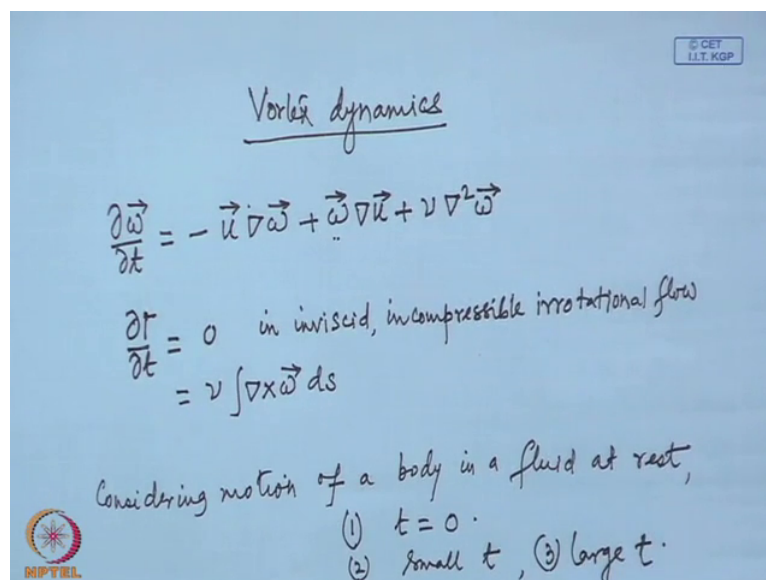 © CET
I.I.T. KGP
Vortex dynamics
∂ω⃗/∂t = - u⃗ ∇ω⃗ + ω⃗ ∇u⃗ + ν ∇²ω⃗
∂Γ/∂t = 0 in inviscid, incompressible irrotational flow
= ν ∫∇×ω⃗ ds
Considering motion of a body in a fluid at rest,
(1) t = 0.
(2) small t, (3) large t.
NPTEL